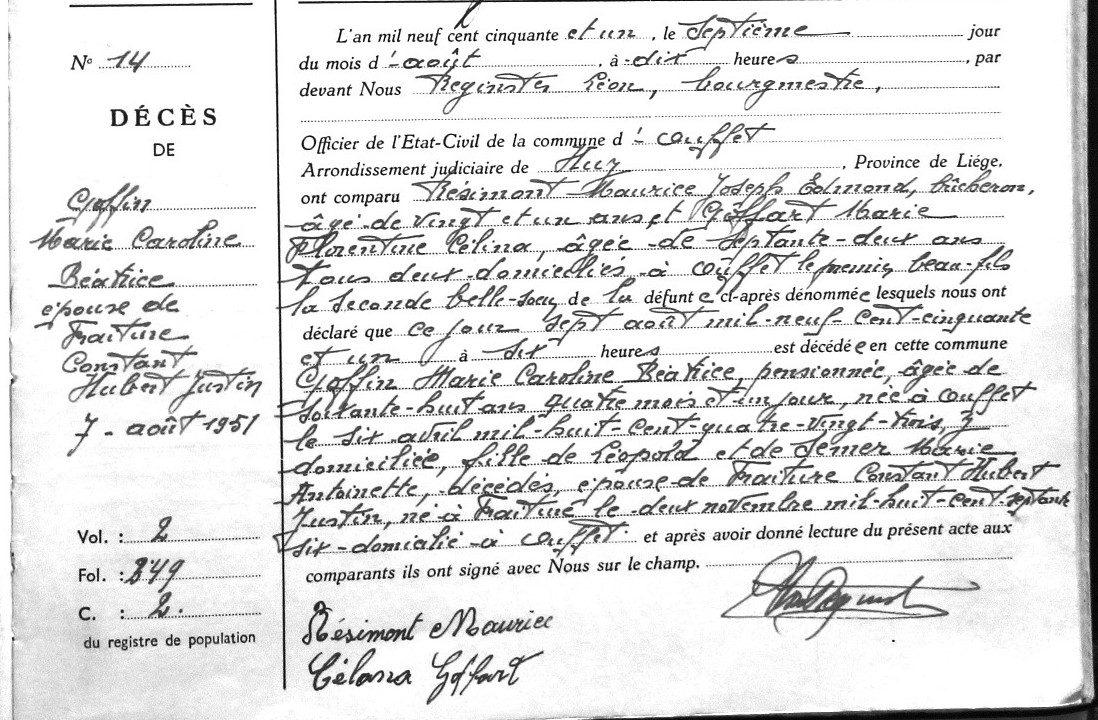 N° 14
DÉCÈS
DE
Goffin
Marie Caroline
Béatrice
épouse de
Fraiture
Constant
Hubert Justin
7 - août 1951
Vol. : 2
Fol. : 849
C. : 2.
du registre de population
L'an mil neuf cent cinquante et un, le septième jour
du mois d'août, à dix heures, par
devant Nous Reginster Léon, bourgmestre,
Officier de l'Etat-Civil de la commune d' Ouffet
Arrondissement judiciaire de Huy, Province de Liége,
ont comparu Résimont Maurice Joseph Edmond, bûcheron,
âgé de vingt et un ans et Goffart Marie
Florentine Célina, âgée de septante-deux ans
tous deux domiciliés à Ouffet le premier beau-fils
la seconde belle-soeur de la défunte ci-après dénommée lesquels nous ont
déclaré que ce jour sept août mil-neuf-cent-cinquante
et un à six heures est décédée en cette commune
Goffin Marie Caroline Béatrice, pensionnée, âgée de
soixante-huit ans quatre mois et un jour, née à Ouffet
le six avril mil-huit-cent-quatre-vingt-trois, y
domiciliée, fille de Léopold et de Demer Marie
Antoinette, décédés, épouse de Fraiture Constant Hubert
Justin, né à Fraiture le deux novembre mil-huit-cent-septante
six-domicilié à Ouffet et après avoir donné lecture du présent acte aux
comparants ils ont signé avec Nous sur le champ.
Résimont Maurice
Goffart